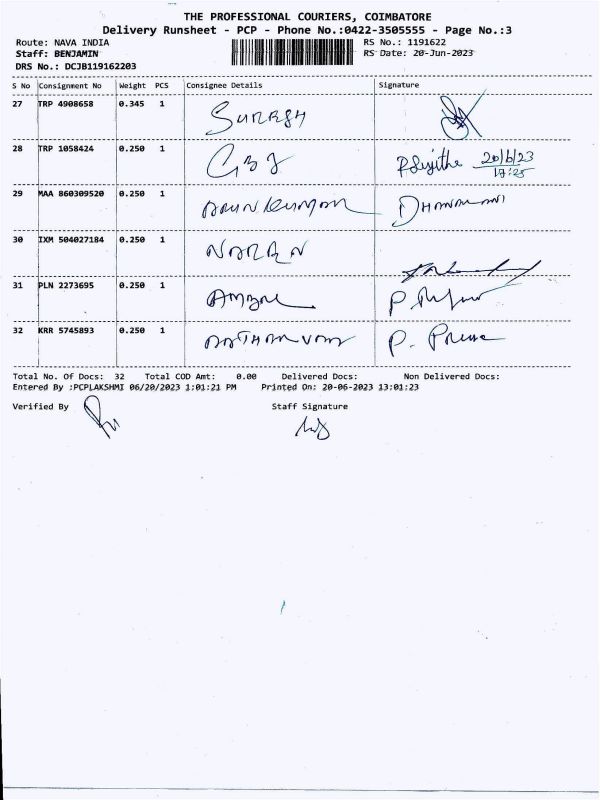 THE PROFESSIONAL COURIERS, COIMBATORE
Delivery Runsheet - PCP - Phone No.:0422-3505555 - Page No.:3
Route: NAVA INDIA RS No.: 1191622
Staff: BENJAMIN RS Date: 20-Jun-2023
DRS No.: DCJB119162203
S No Consignment No Weight PCS Consignee Details Signature
27 TRP 4908658 0.345 1 SURESH
28 TRP 1058424 0.250 1 20/6/23
29 MAA 860309520 0.250 1 ARUN KUMAR DHANAMANI
30 IXM 504027184 0.250 1 NAREN
31 PLN 2273695 0.250 1
32 KRR 5745893 0.250 1
Total No. Of Docs: 32 Total COD Amt: 0.00 Delivered Docs: Non Delivered Docs:
Entered By :PCPLAKSHMI 06/20/2023 1:01:21 PM Printed On: 20-06-2023 13:01:23
Verified By Staff Signature